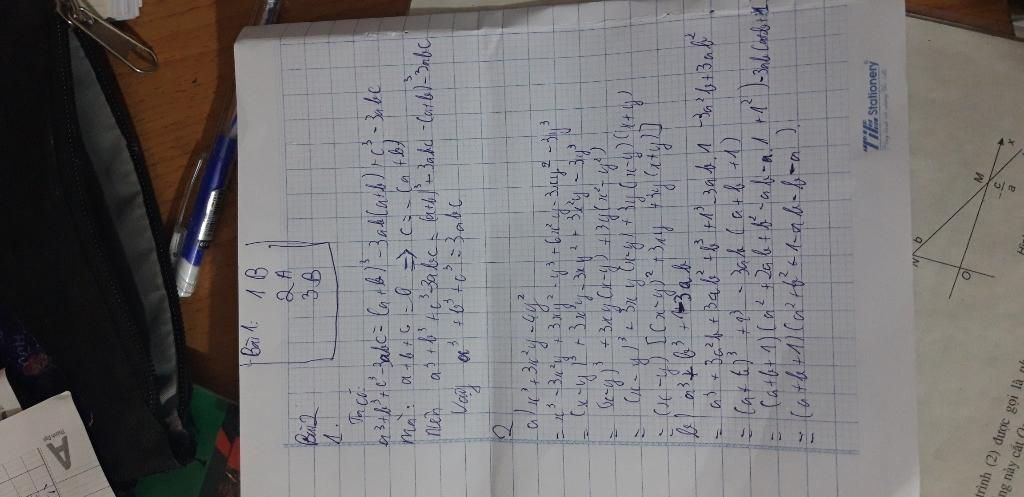 Bài 1: 1B
2A
3B
Bài 2
1. Ta có:
a³+b³+c³-3abc = (a+b)³-3ab(a+b)+c³-3abc
Mà: a+b+c=0 => c=-(a+b)
Nên a³+b³+c³-3abc = (a+b)³-3abc-(a+b)³-3abc
Vậy a³+b³+c³=3abc
2
a) x³+3x²y-4y³
= x³-3x²y+3xy²-y³+6x²y-3xy²-3y³
= (x-y)³+3x²y-3xy²+3x²y-3y³
= (x-y)³+3xy(x-y)+3y(x²-y²)
= (x-y)³+3xy(x-y)+3y(x-y)(x+y)
= (x-y)[(x-y)²+3xy+3y(x+y)]
b) a³+b³+1-3ab
= a³+3a²b+3ab²+b³+1³-3ab.1-3a²b+3ab²
= (a+b)³+1³-3ab(a+b+1)
= (a+b+1)(a²+2ab+b²-a.1+1²)-3ab(a+b+1)
= (a+b+1)(a²+b²+1-ab-b-a)
TIE Stationery
A
N
b
M
x
-c/a
O
trình (2) được gọi là
ng này cắt O